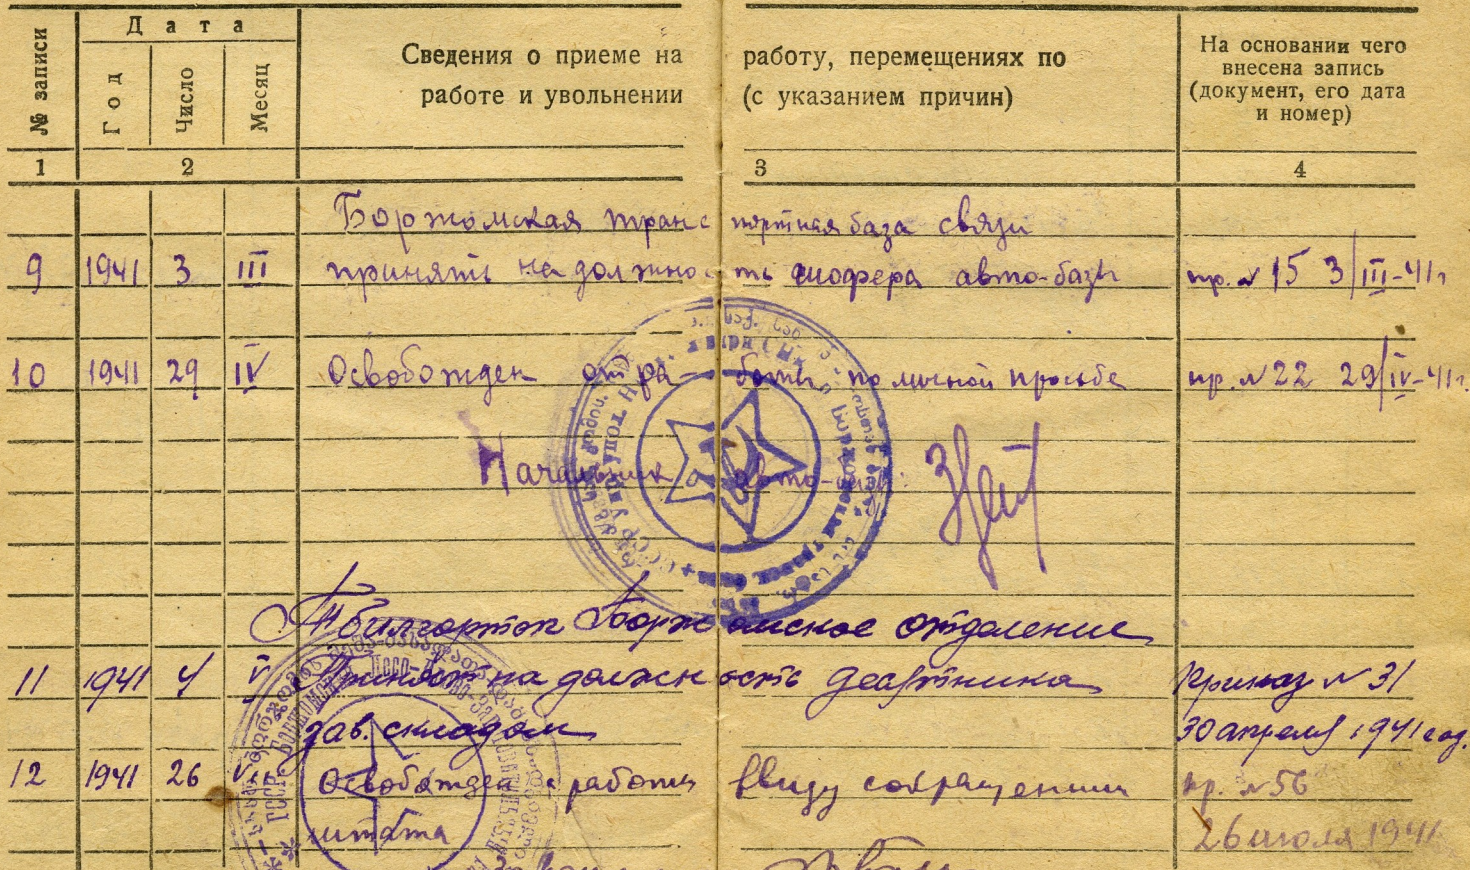 № записи
Дата
Год
Число
Месяц
Сведения о приеме на работу, перемещениях по
работе и увольнении (с указанием причин)
На основании чего
внесена запись
(документ, его дата
и номер)
1 2 3 4
Боржомская транспортная база связи
9 1941 3 III принять на должность шофера авто-базы пр. № 15 3/III-41г
10 1941 29 IV Освобожден от работы по личной просьбе пр. № 22 29/IV-41г.
Начальник авто-базы
Боржомское отделение
11 1941 4 V Принят на должность
зав. складом
Приказ № 31
30 апреля 1941 год.
12 1941 26 Освобожден с работы ввиду сокращения
штата
пр. № 56
26 июля 1941